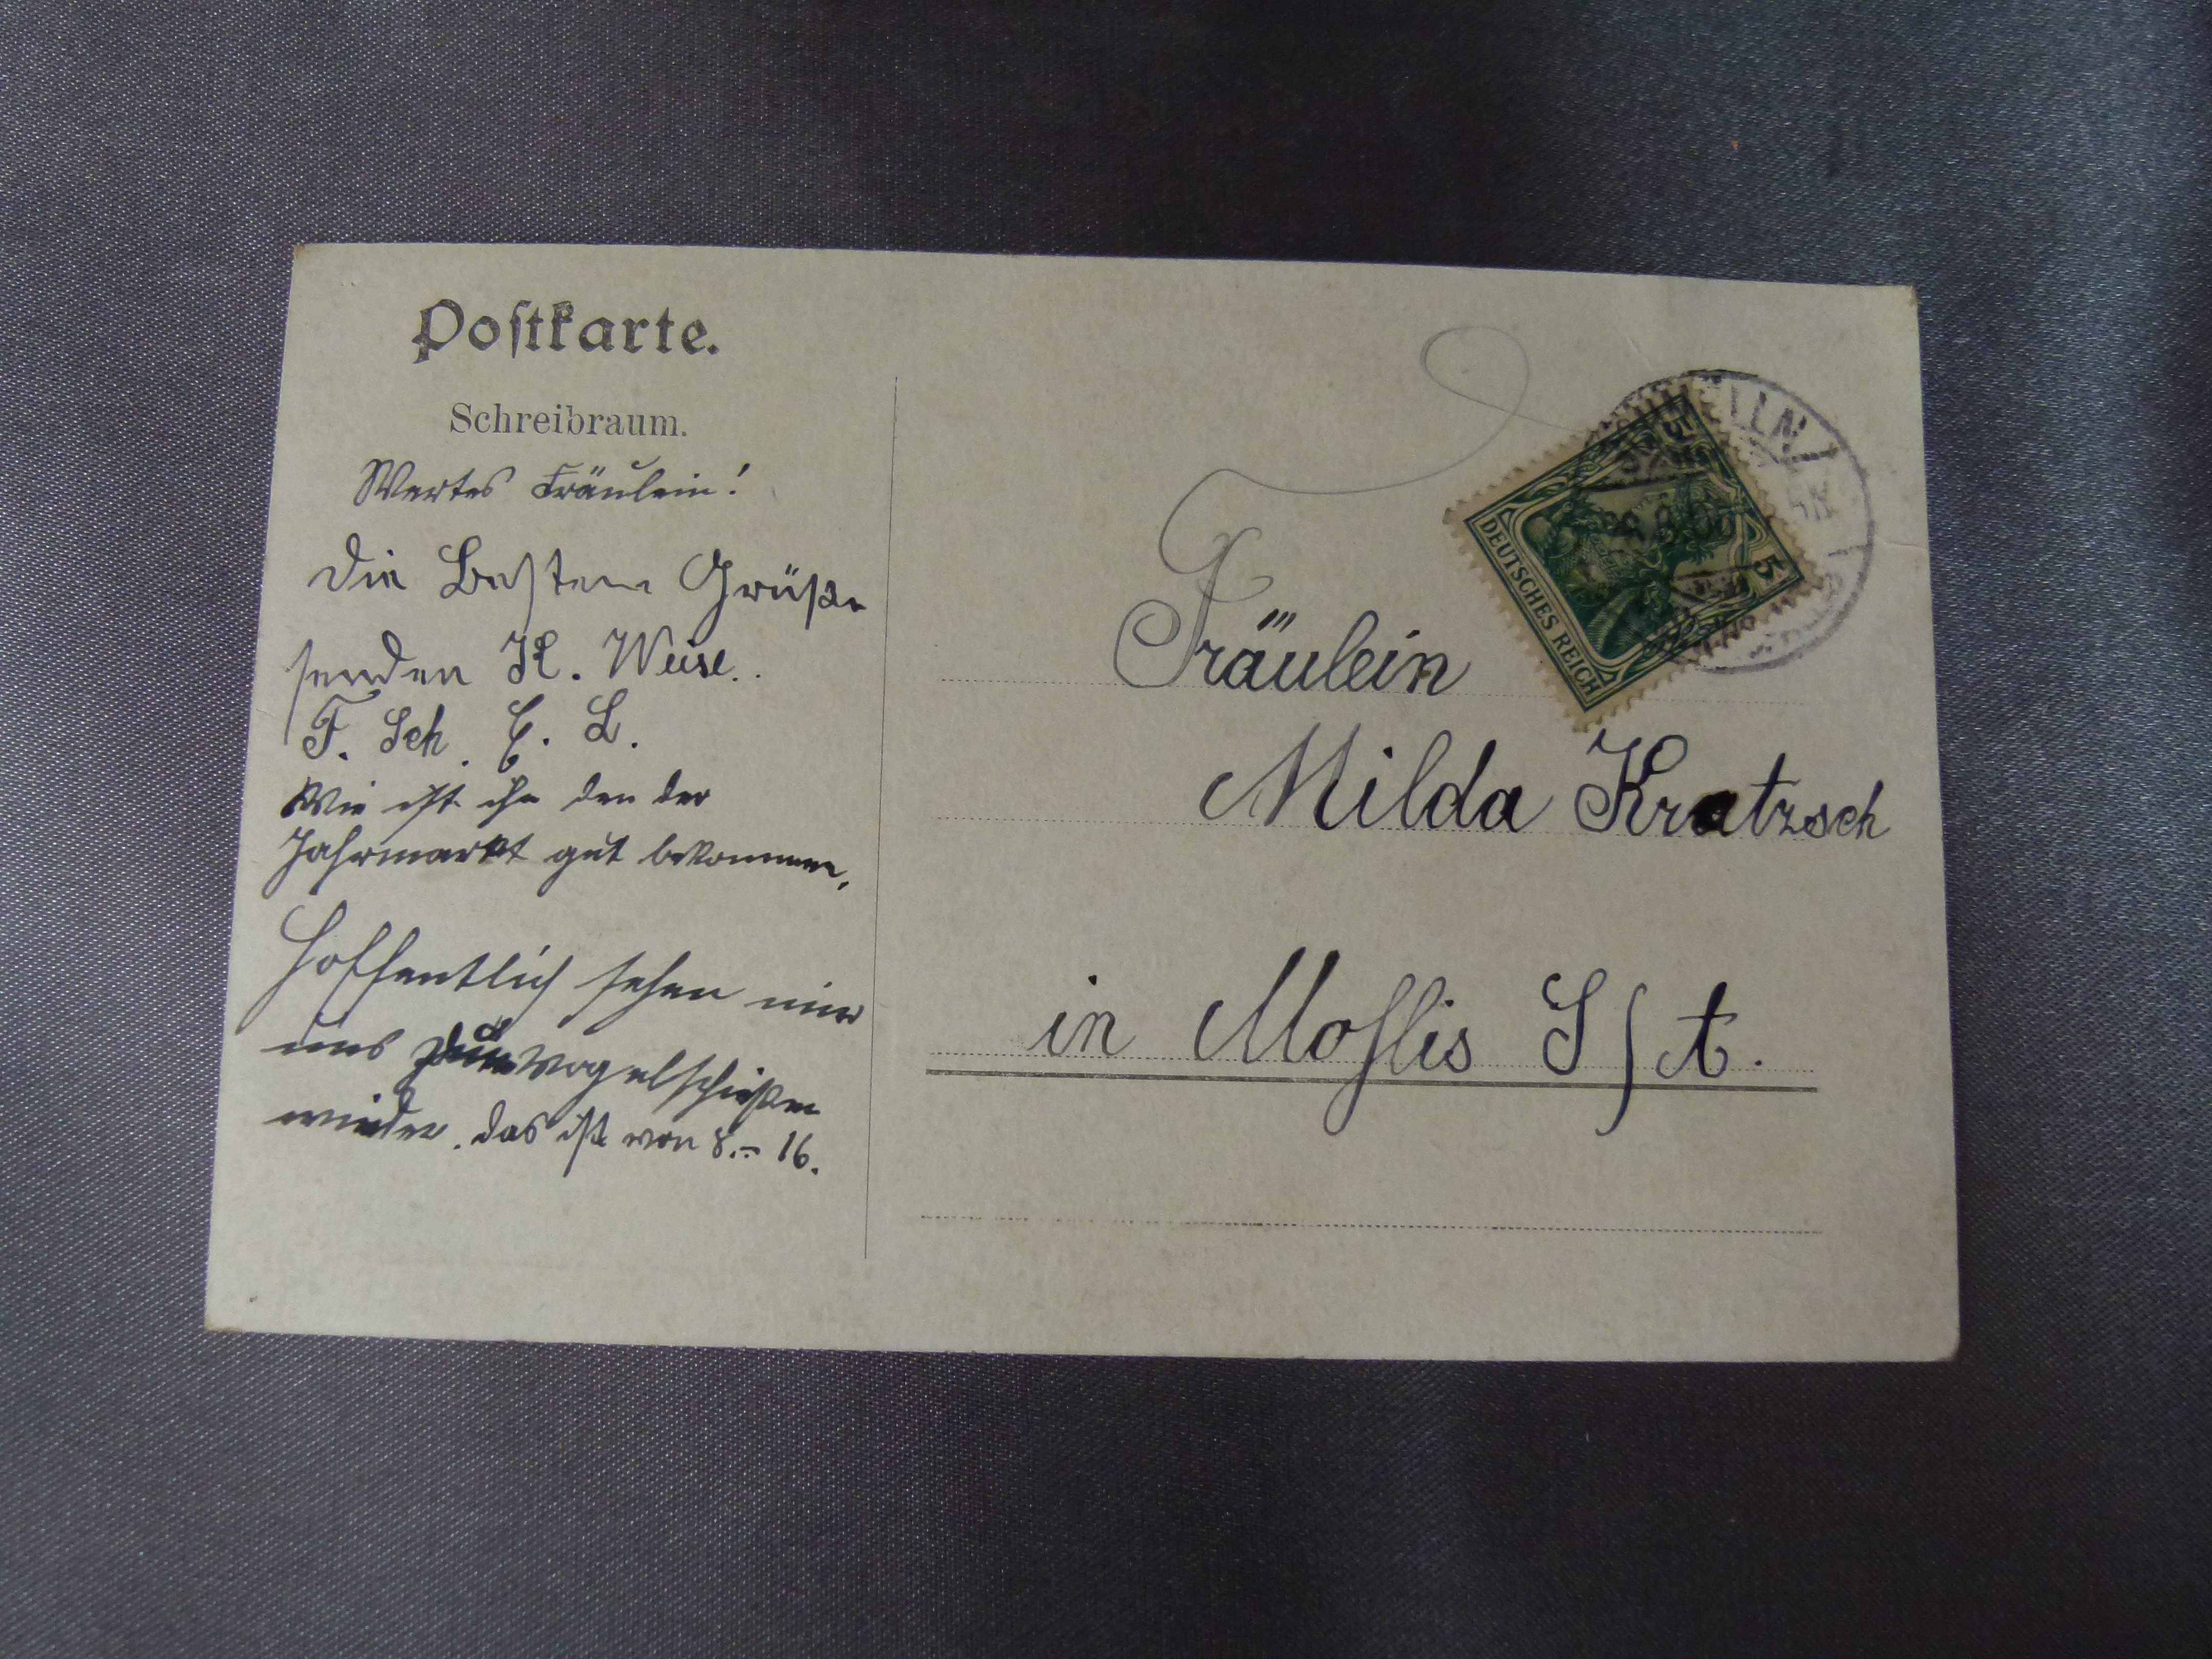 Postkarte.
Schreibraum.
Wertes Fräulein!
Die Besten Grüße
senden K. Weise.
F. Sch. E. L.
Wie ist ihn den der
Jahrmarkt gut bekommen,
Hoffentlich sehen wir
uns zum Vogelschießen
wieder. das ist von 8.-16.
DEUTSCHES REICH
5
5
Fräulein
Milda Kratzsch
in Moßlis S/A.